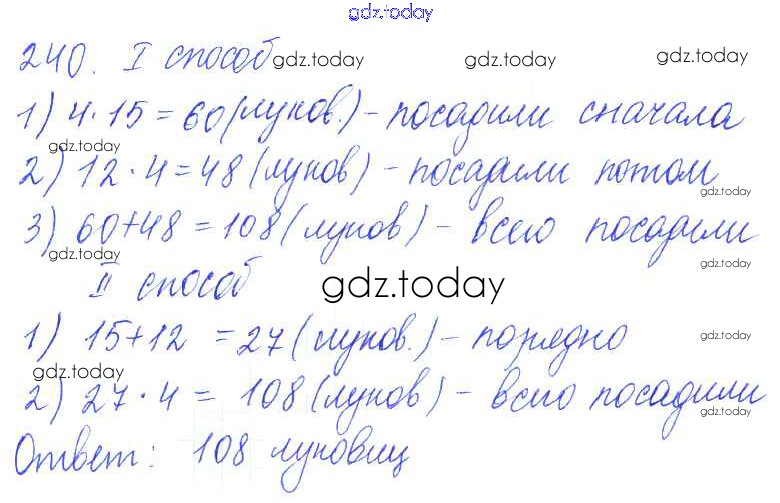 gdz.today
240. I способ gdz.today gdz.today gdz.today
1) 4·15=60(луков.) - посадили сначала
gdz.today
2) 12·4=48(луков) - посадили потом gdz.today
3) 60+48=108(луков) - всего посадили
gdz.today gdz.today
II способ gdz.today
1) 15+12=27(луков.) - порядно gdz.today
gdz.today
2) 27·4=108(луков) - всего посадили
gdz.today
Ответ: 108 луковиц